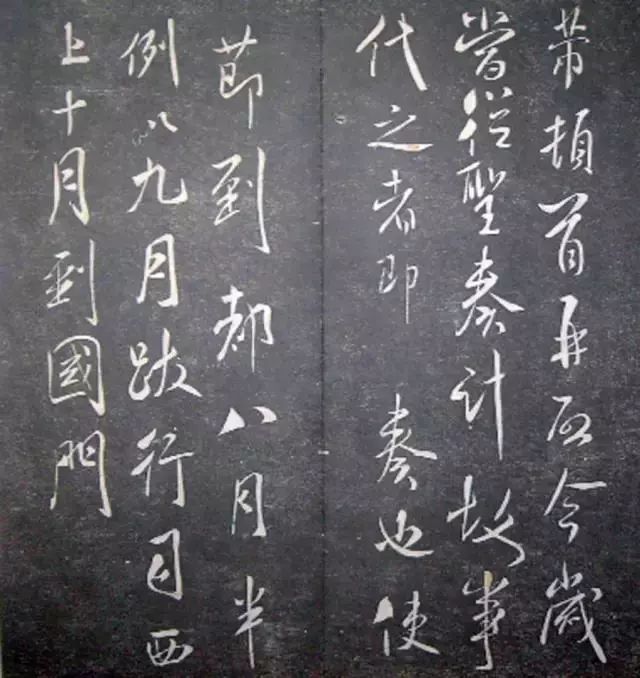 芾頓首再啟今歲
當從聖奏計故事
代之者即 奏也使
節到都八月半
例以九月跋行自西
上十月到國門